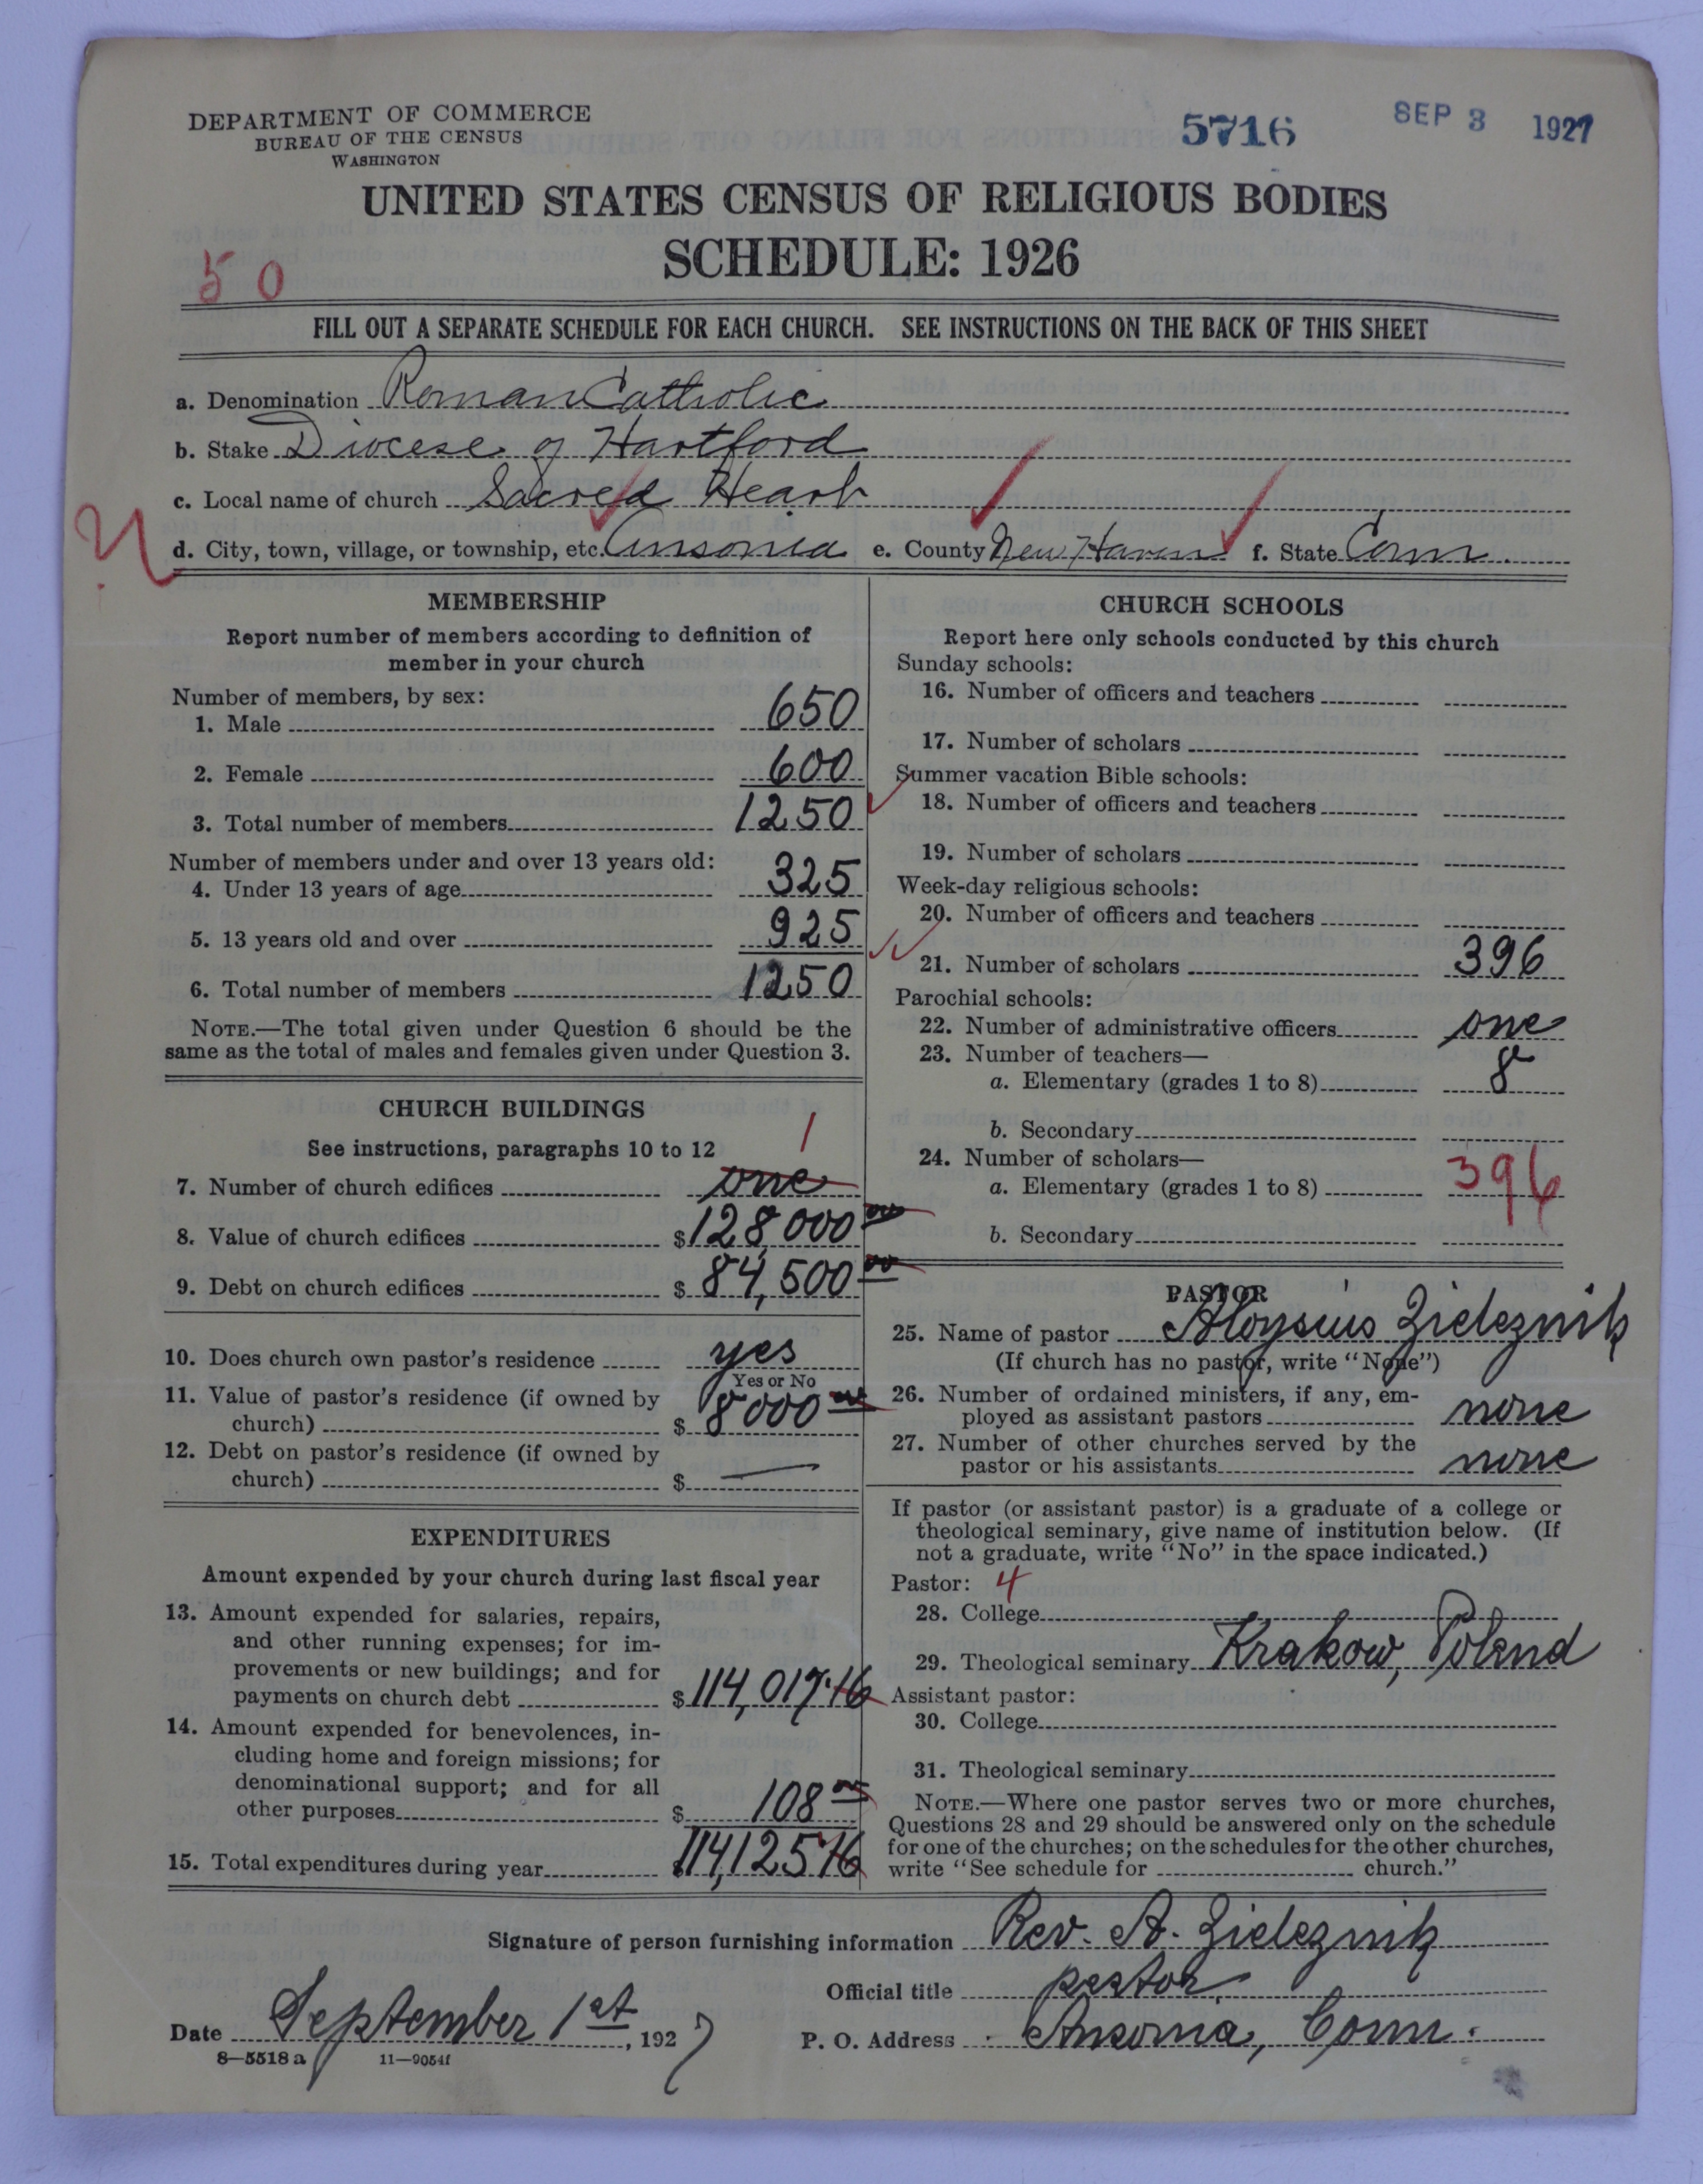 DEPARTMENT OF COMMERCE
BUREAU OF THE CENSUS
WASHINGTON
5716
SEP 3 1927
UNITED STATES CENSUS OF RELIGIOUS BODIES
SCHEDULE: 1926
50
FILL OUT A SEPARATE SCHEDULE FOR EACH CHURCH. SEE INSTRUCTIONS ON THE BACK OF THIS SHEET
a. Denomination Roman Catholic
b. Stake Diocese of Hartford
c. Local name of church Sacred Heart
d. City, town, village, or township, etc. Ansonia e. County New Haven f. State Conn.
MEMBERSHIP
Report number of members according to definition of
member in your church
Number of members, by sex:
1. Male 650
2. Female 600
3. Total number of members 1250
Number of members under and over 13 years old:
4. Under 13 years of age 325
5. 13 years old and over 925
6. Total number of members 1250
NOTE.—The total given under Question 6 should be the
same as the total of males and females given under Question 3.
CHURCH BUILDINGS
See instructions, paragraphs 10 to 12
1
7. Number of church edifices one
8. Value of church edifices $128,000 00
9. Debt on church edifices $84,500 00
10. Does church own pastor's residence yes
Yes or No
11. Value of pastor's residence (if owned by
church) $8000 00
12. Debt on pastor's residence (if owned by
church) $ —
EXPENDITURES
Amount expended by your church during last fiscal year
13. Amount expended for salaries, repairs,
and other running expenses; for im-
provements or new buildings; and for
payments on church debt $114,017.16
14. Amount expended for benevolences, in-
cluding home and foreign missions; for
denominational support; and for all
other purposes $108 00
15. Total expenditures during year $114,125.16
CHURCH SCHOOLS
Report here only schools conducted by this church
Sunday schools:
16. Number of officers and teachers
17. Number of scholars
Summer vacation Bible schools:
18. Number of officers and teachers
19. Number of scholars
Week-day religious schools:
20. Number of officers and teachers
21. Number of scholars 396
Parochial schools:
22. Number of administrative officers one
23. Number of teachers—
a. Elementary (grades 1 to 8) 8
b. Secondary
24. Number of scholars—
a. Elementary (grades 1 to 8) 396
b. Secondary
PASTOR
25. Name of pastor Aloysius Zieleznik
(If church has no pastor, write "None")
26. Number of ordained ministers, if any, em-
ployed as assistant pastors none
27. Number of other churches served by the
pastor or his assistants none
If pastor (or assistant pastor) is a graduate of a college or
theological seminary, give name of institution below. (If
not a graduate, write "No" in the space indicated.)
Pastor: 4
28. College
29. Theological seminary Krakow, Polend
Assistant pastor:
30. College
31. Theological seminary
NOTE.—Where one pastor serves two or more churches,
Questions 28 and 29 should be answered only on the schedule
for one of the churches; on the schedules for the other churches,
write "See schedule for church."
Signature of person furnishing information Rev. A. Zieleznik
Official title pastor.
Date September 1st, 1927
P. O. Address Ansonia, Conn.
8—5518 a 11—9054f